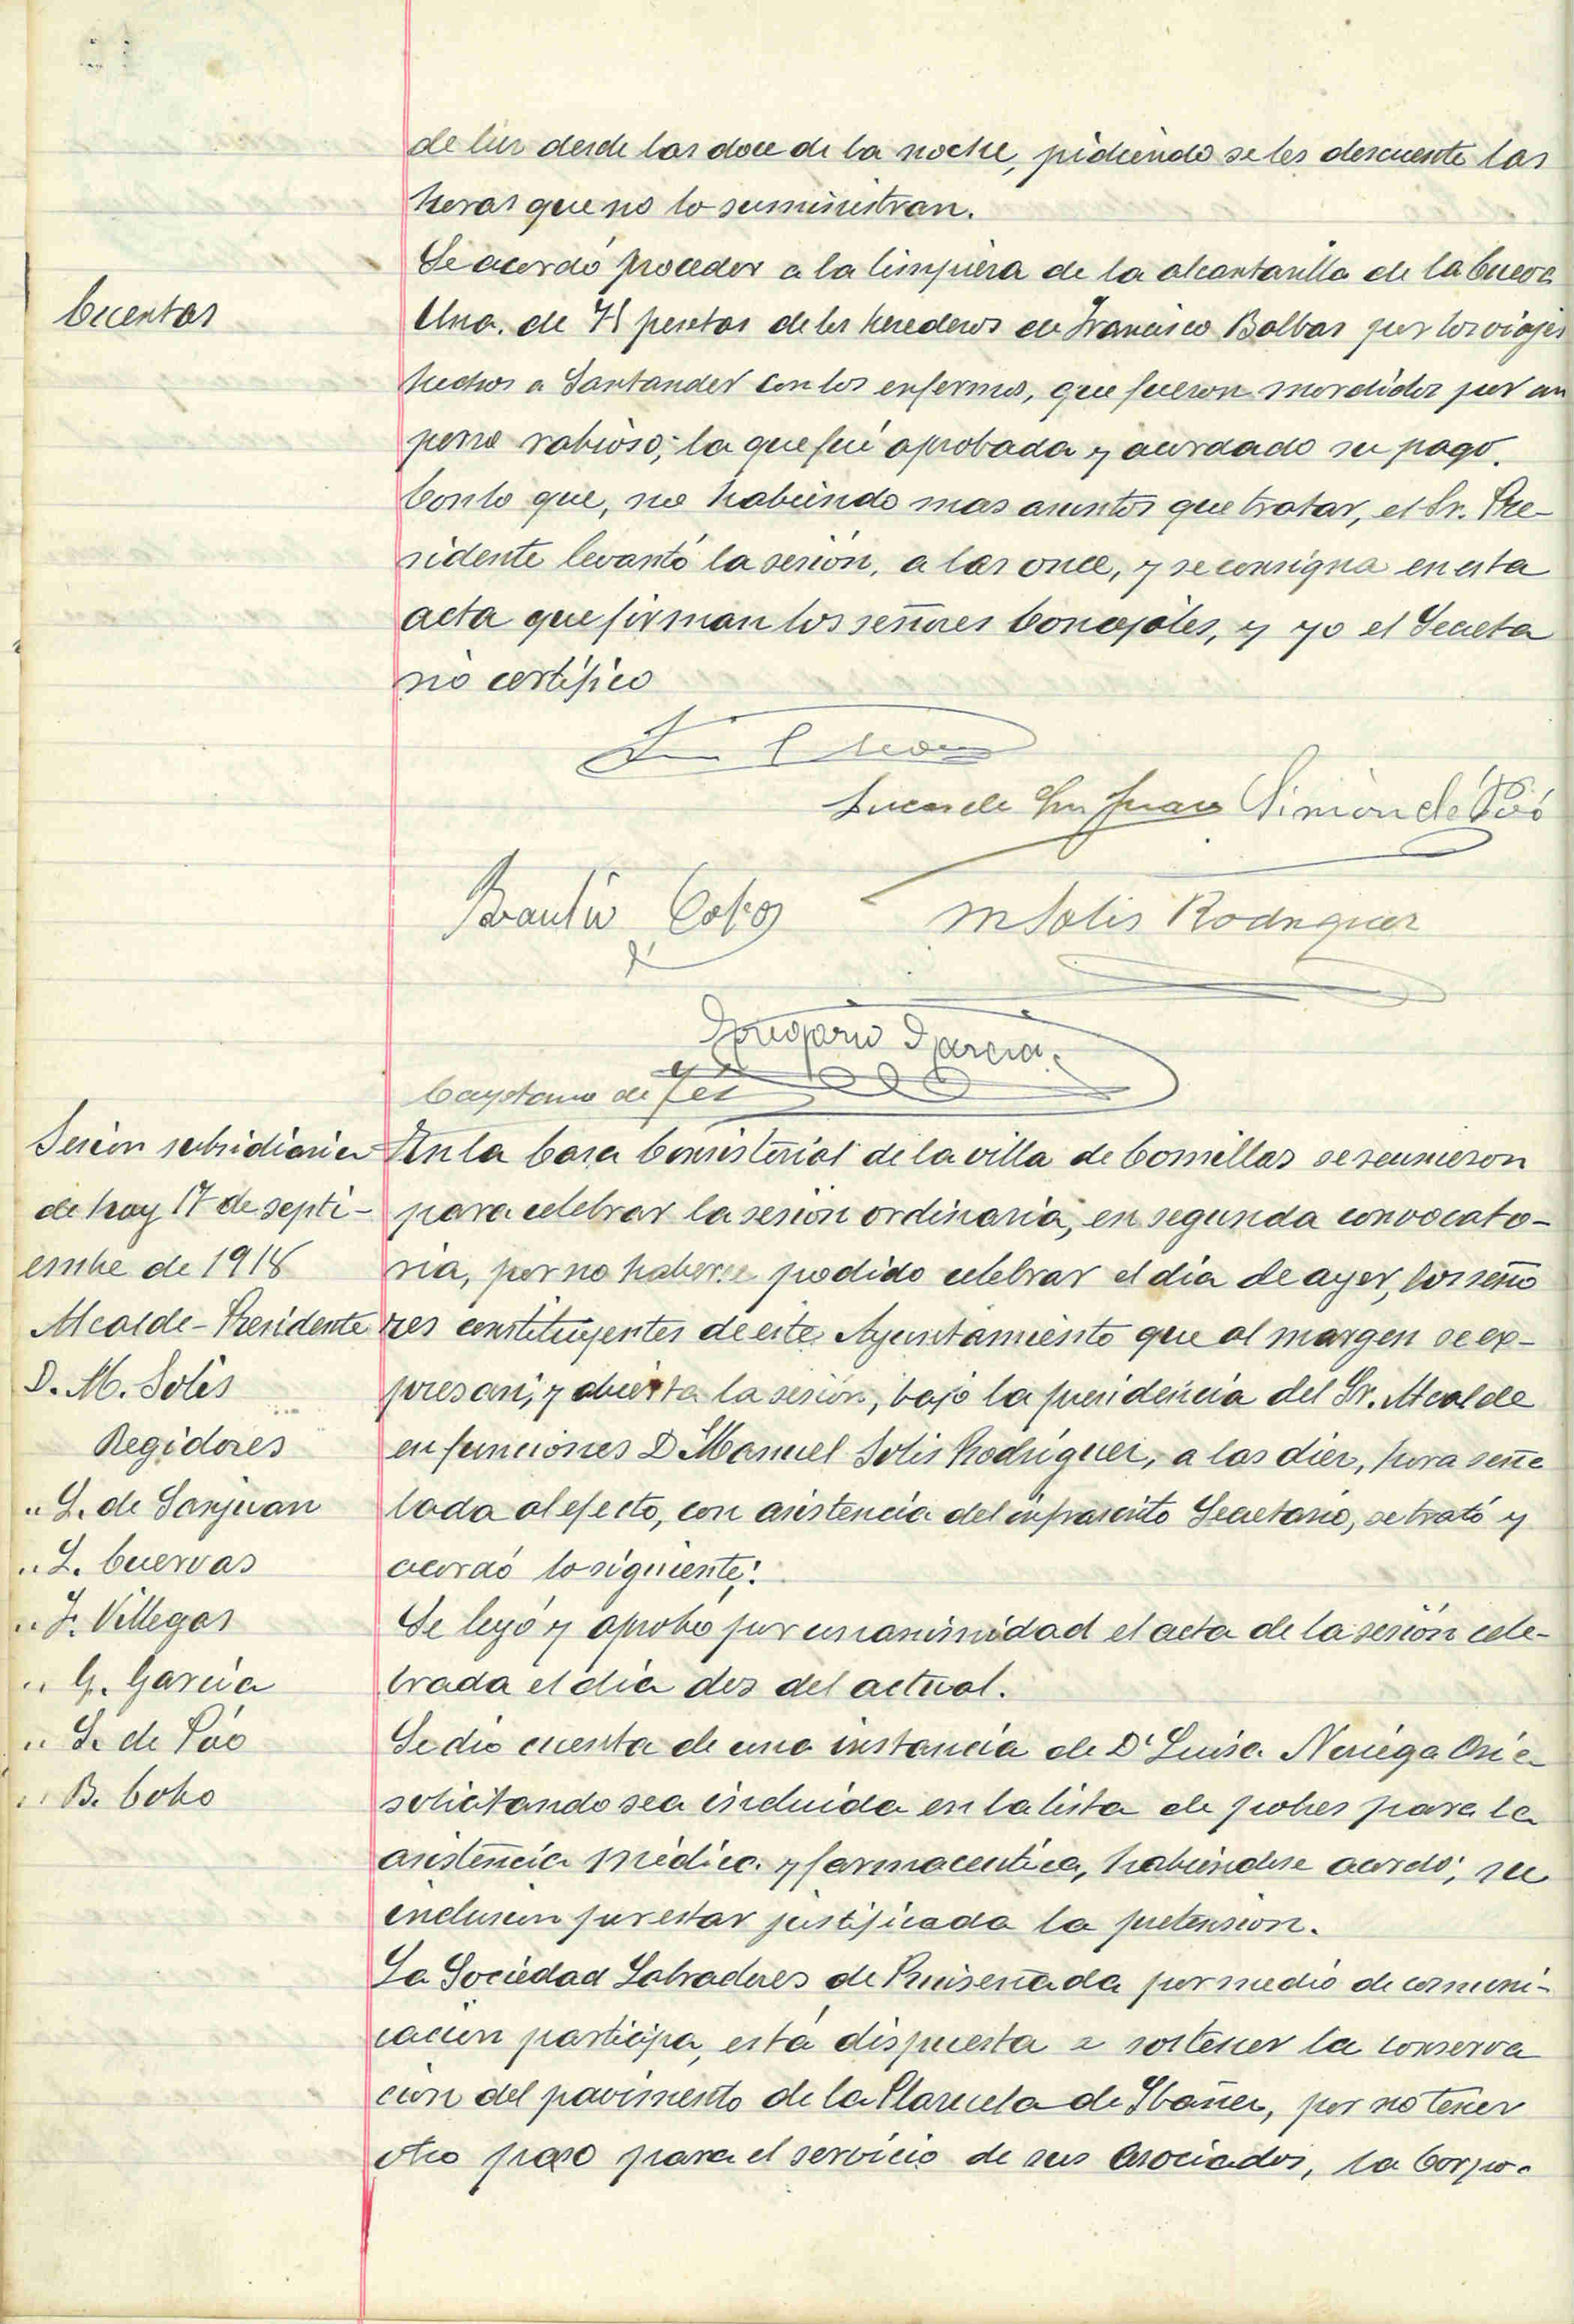 de luz desde las doce de la noche, pidiendo se les descuente las
horas que no lo suministran.
Se acordó proceder a la limpieza de la alcantarilla de la Cueva
Cuentas
Una de pesetas de los herederos de Francisco Balbas por los viajes
hechos a Santander con los enfermos, que fueron mordidos por un
perro rabioso; la que fué aprobada y acordado su pago.
Con lo que, no habiendo mas asuntos que tratar, el Sr. Pre-
sidente levantó la sesión, a las once, y se consigna en esta
acta que firman los señores Concejales, y yo el Secreta
rio certifico
Lucas de San Juan Simón de Póo
Braulio Cobo M Solis Rodriguez
Gregorio Garcia
Cayetano de
Sesion subsidiaria
de hoy 17 de septi-
embre de 1918
Alcalde-Presidente
D. M. Solis
Regidores
" L. de Sanjuan
" L. Cuervas
" F. Villegas
" G. Garcia
" S. de Póo
" B. Cobo
En la Casa Consistorial de la villa de Comillas se reunieron
para celebrar la sesion ordinaria, en segunda convocato-
ria, por no haberse podido celebrar el dia de ayer, los seño
res constituyentes de este Ayuntamiento que al margen se ex-
presan; y abierta la sesión, bajo la presidencia del Sr. Alcalde
en funciones D Manuel Solis Rodriguez, a las diez, hora seña
lada al efecto, con asistencia del infrascrito Secretario, se trató y
acordó lo siguiente:
Se leyó y aprobó por unanimidad el acta de la sesión cele-
brada el dia dos del actual.
Se dió cuenta de una instancia de Dª Luisa Noriega
solicitando sea incluida en la lista de pobres para la
asistencia médica y farmaceutica, habiendose acordó, su
inclusion por estar justificada la pretension.
La Sociedad Labradores de Ruiseñada por medio de comuni-
cación participa, está dispuesta a sostener la conserva
cion del pavimento de la Plazuela de Ibañez, por no tener
otro paso para el servicio de sus asociados, la Corpo-